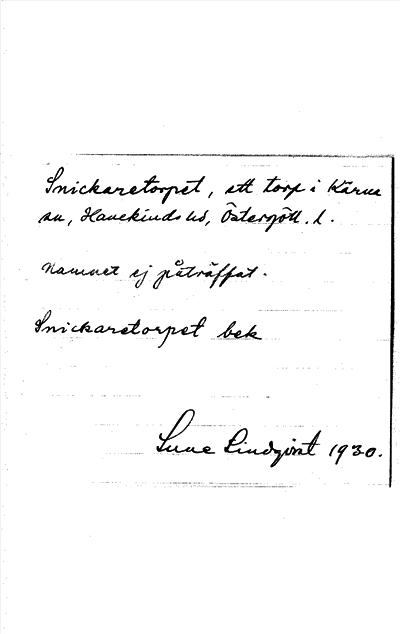 Snickaretorpet, ett torp i Kärna
sn, Hanekinds hd, Östergötl. l.
Namnet ej påträffat.
Snickaretorpet bek
Sune Lindqvist 1930.